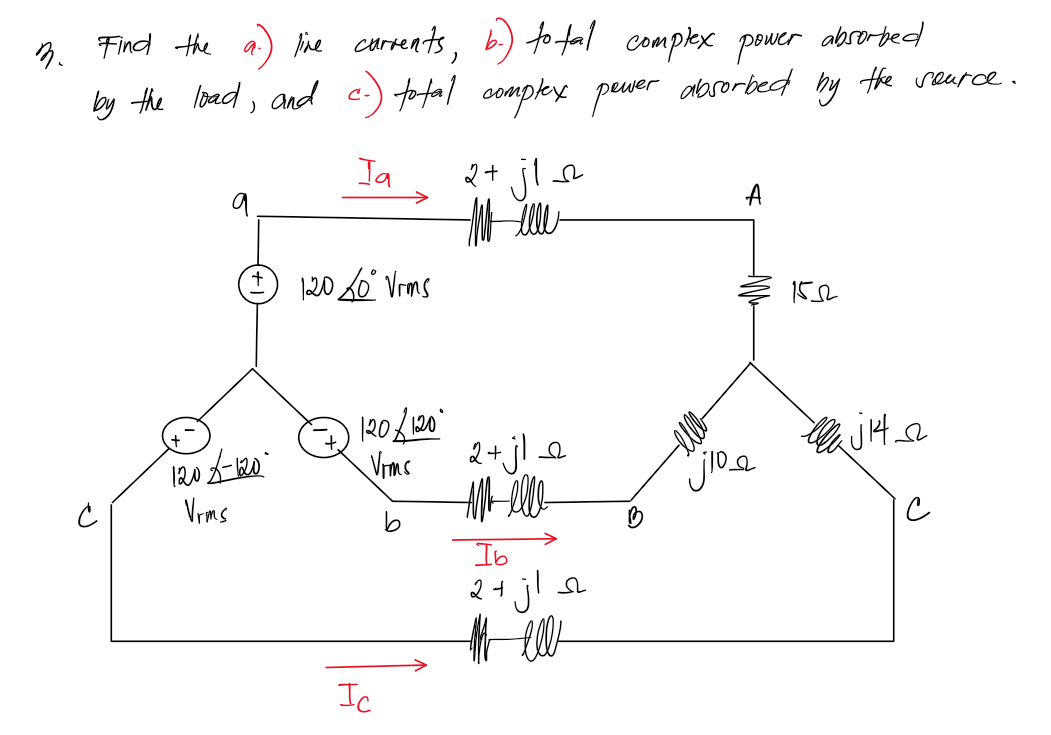 3. Find the a.) line currents, b.) total complex power absorbed
by the load, and c.) total complex power absorbed by the source.
Ia
2 + j1 Ω
a
A
120∠0° Vrms
15Ω
120∠120°
Vrms
120∠-120°
Vrms
2 + j1 Ω
j10Ω
j14 Ω
C
b
B
C
Ib
2 + j1 Ω
Ic